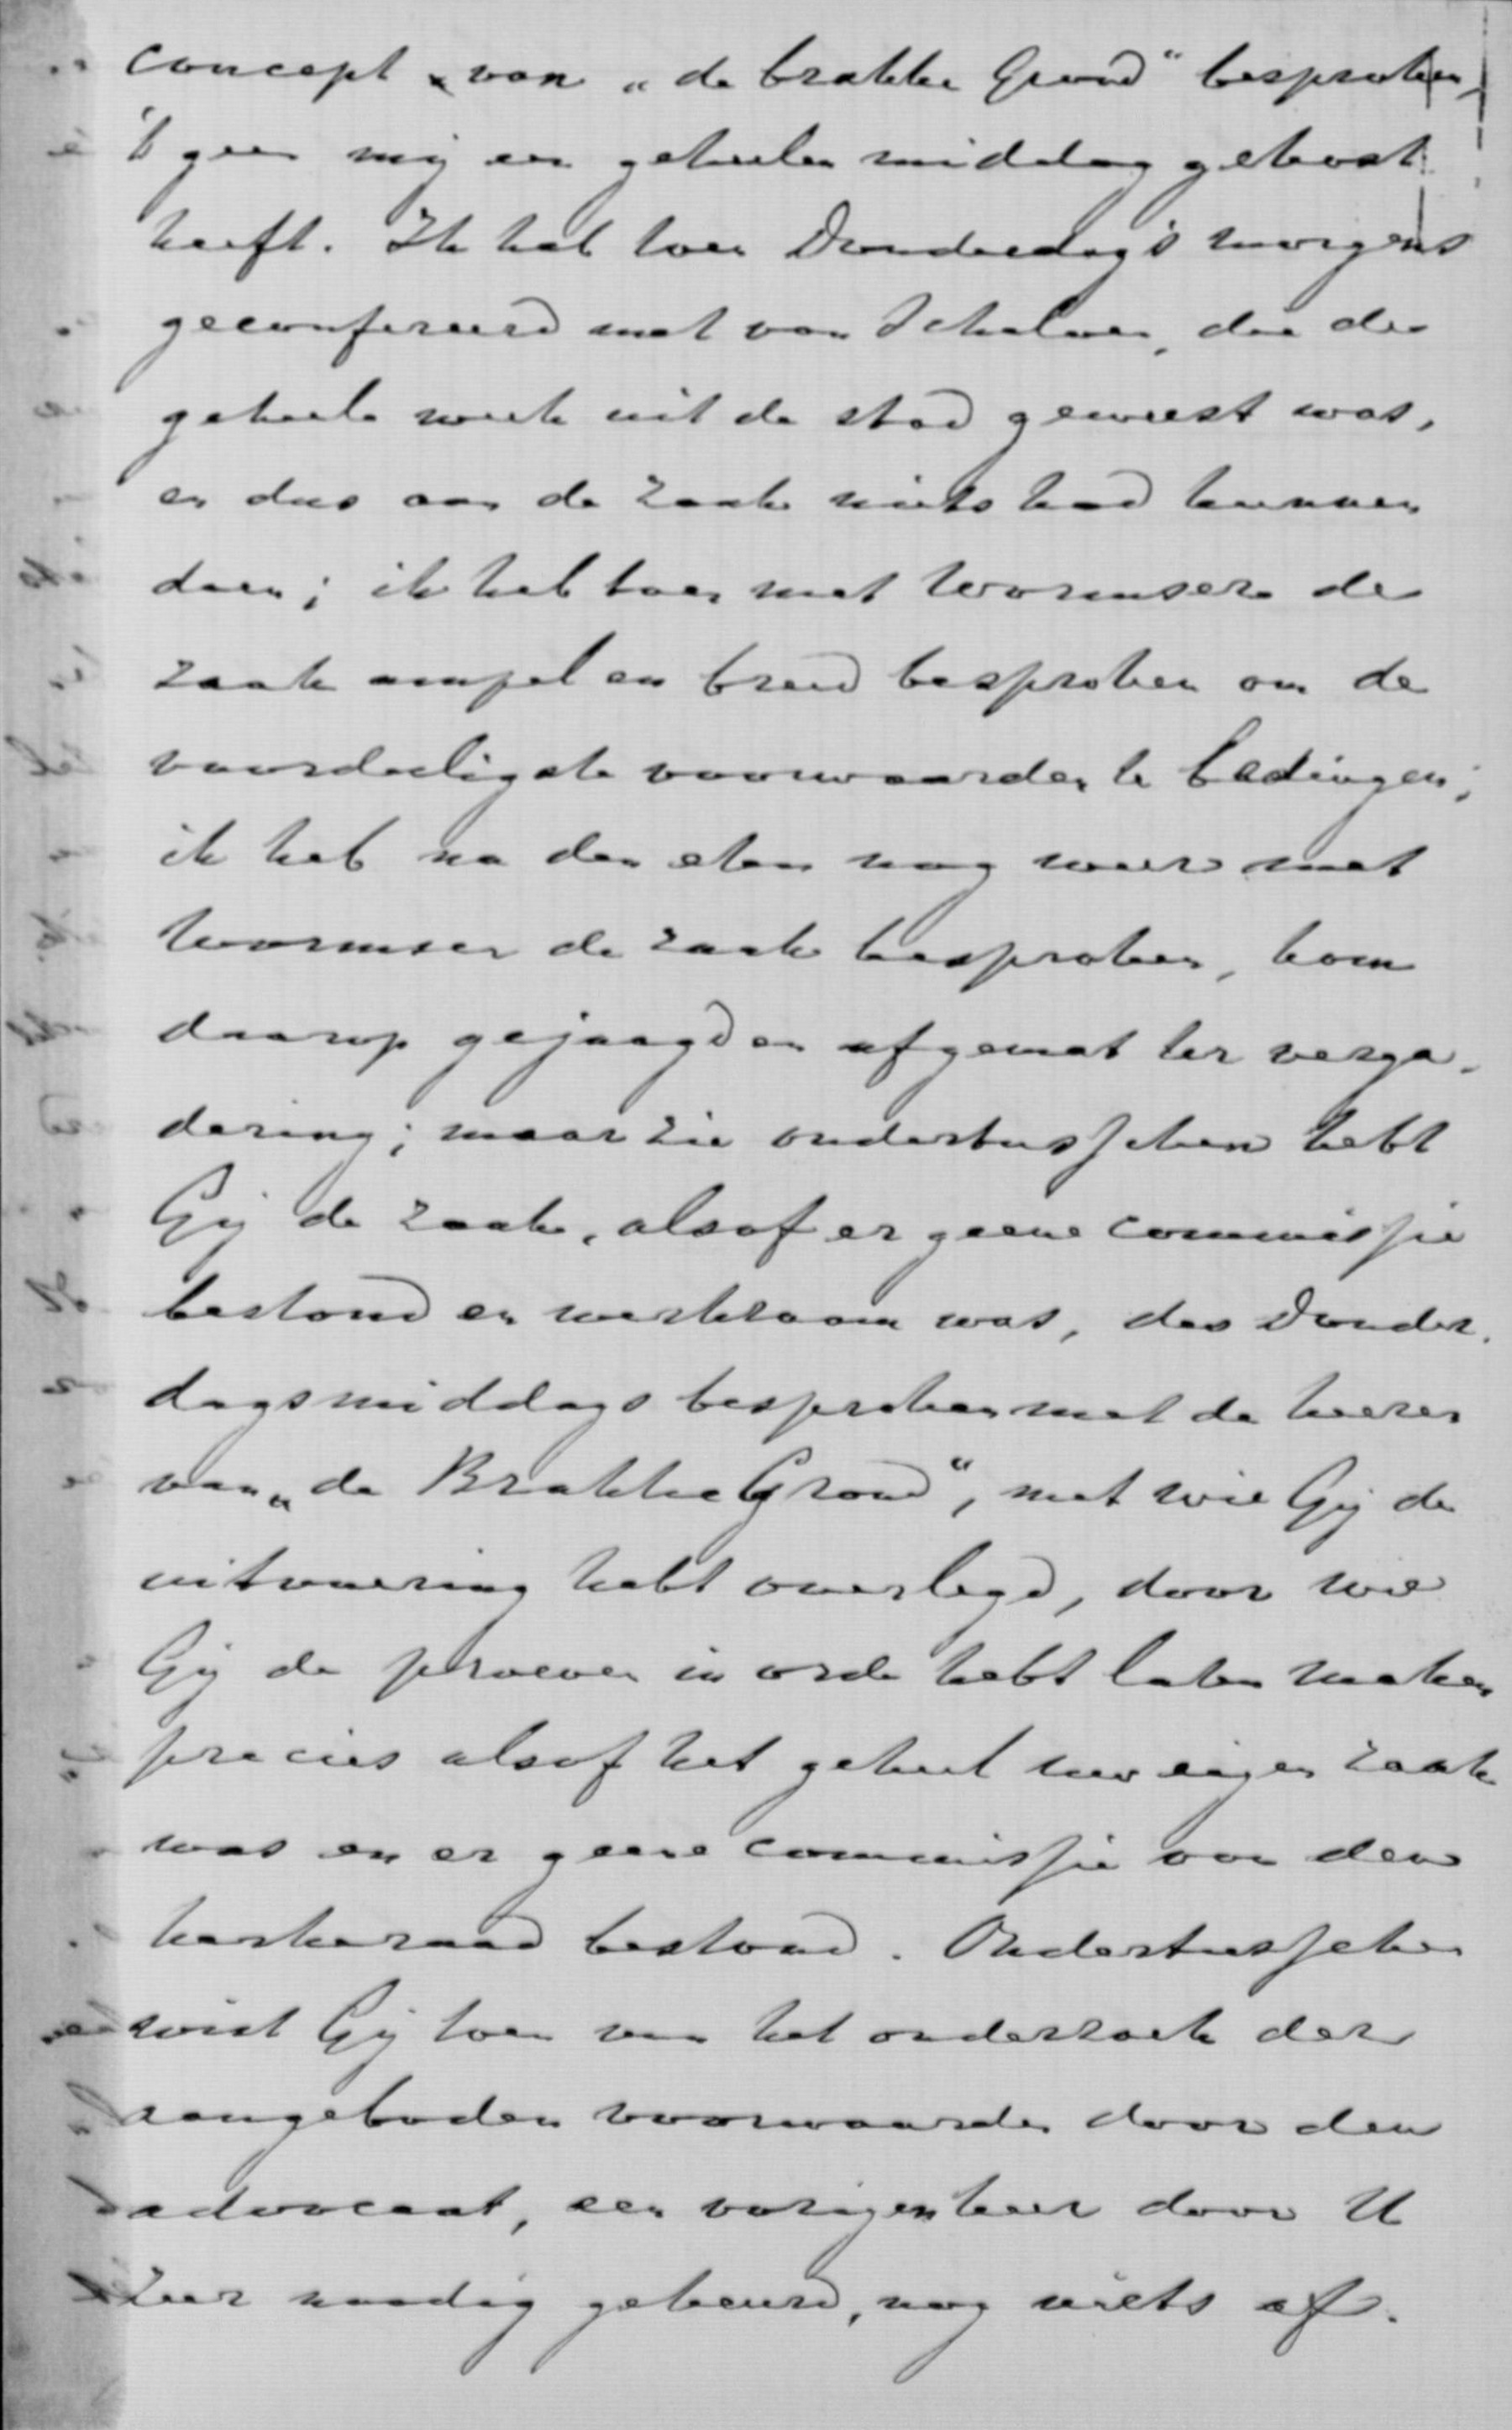 concept van „de brakke Grond" besproken,
't geen mij een geheelen middag gekost
heeft. Ik heb toen Donderdag's morgens
geconfereerd met van Schelven, die de
geheele week uit de stad geweest was,
en dus aan de zaak niets had kunnen
doen; ik heb toen met Wormser de
zaak ampel en breed besproken om de
voordeeligste voorwaarden te bedingen;
ik heb na den eten nog weer met
Wormser de zaak besproken, kom
daarop gejaagd en afgemat ter verga-
dering; maar zie ondertusschen hebt
Gij de zaak, alsof er geene commissie
bestond en werkzaam was, des Donder-
dagsmiddags besproken met de heeren
van „de Brakke Grond", met wie Gij de
uitvoering hebt overlegd, door wie
Gij de proeven in orde hebt laten maken
precies alsof het geheel uw eigen zaak
was en er geene commissie van den
kerkeraad bestond. Ondertusschen
wist Gij toen van het onderzoek der
aangeboden voorwaarden door den
advocaat, een vorigen keer door U
zeer noodig gekeurd, nog niets af.